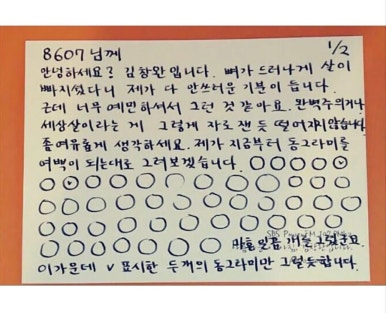 8607님께 1/2
안녕하세요? 김창완입니다. 뼈가 드러나게 살이
빠지셨다니 제가 다 안쓰러운 기분이 듭니다.
근데 너무 예민하셔서 그런 것 같아요. 완벽주의거나
세상살이라는 게 그렇게 자로 잰 듯 떨어지지 않습니다
좀 여유롭게 생각하세요. 제가 지금부터 동그라미를
여백이 되는대로 그려보겠습니다.
SBS Power FM
마흔일곱 개를 그렸군요.
이 가운데 v 표시한 두 개의 동그라미만 그럴듯합니다.